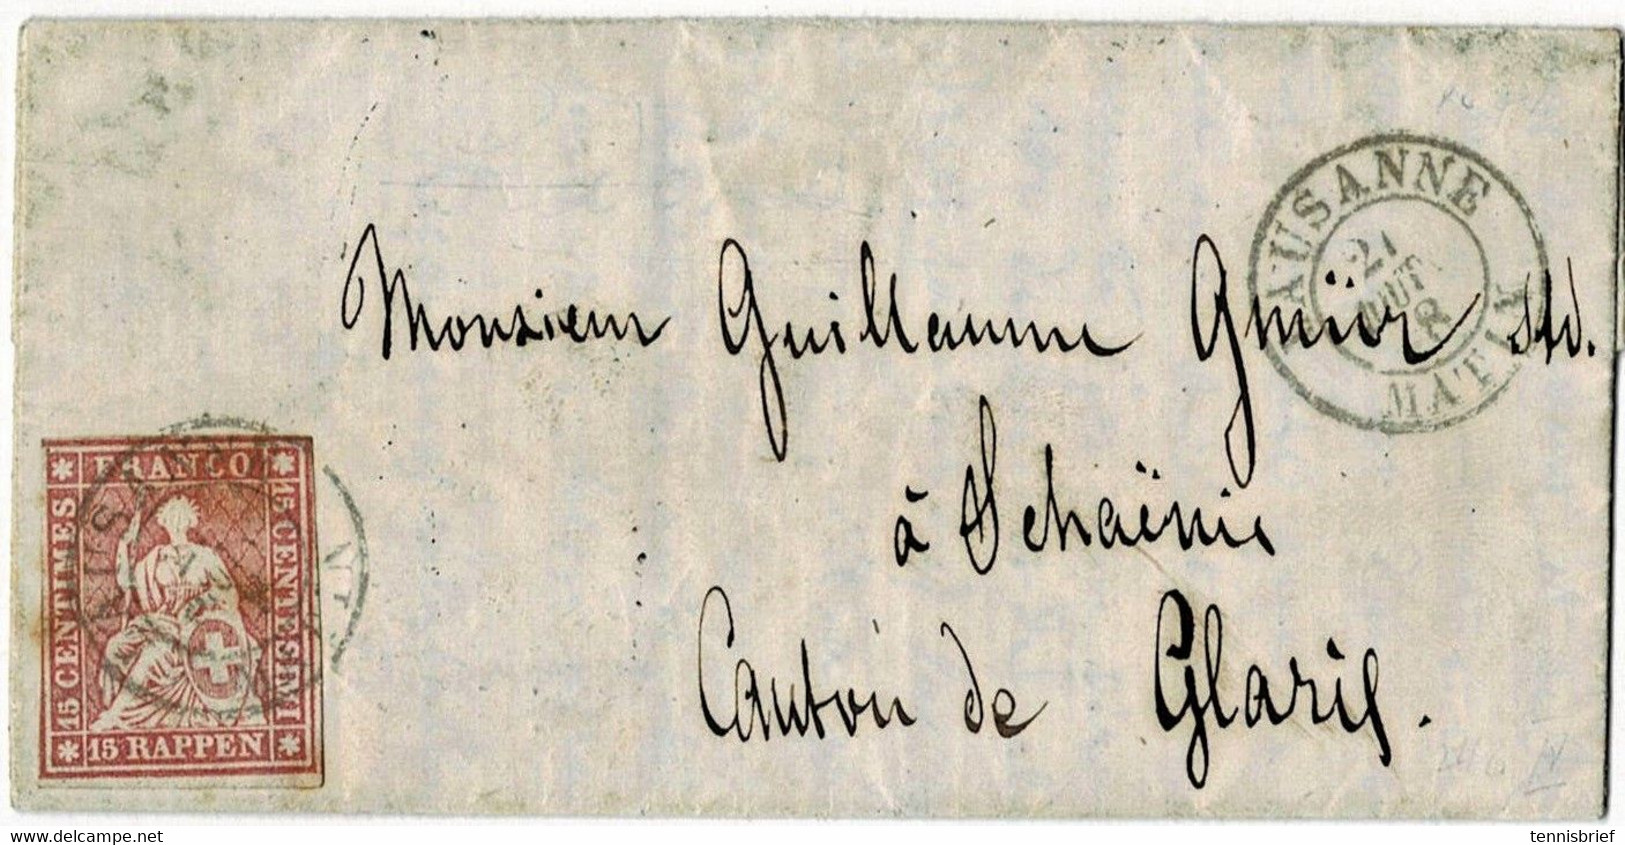 LAUSANNE
21
AOUT
8
MATIN
Monsieur Guillaume Gmür
à Schaënis
Canton de Glaris.
FRANCO
15 CENTIMES
15 CENTESIMI
15 RAPPEN
www.delcampe.net
tennisbrief